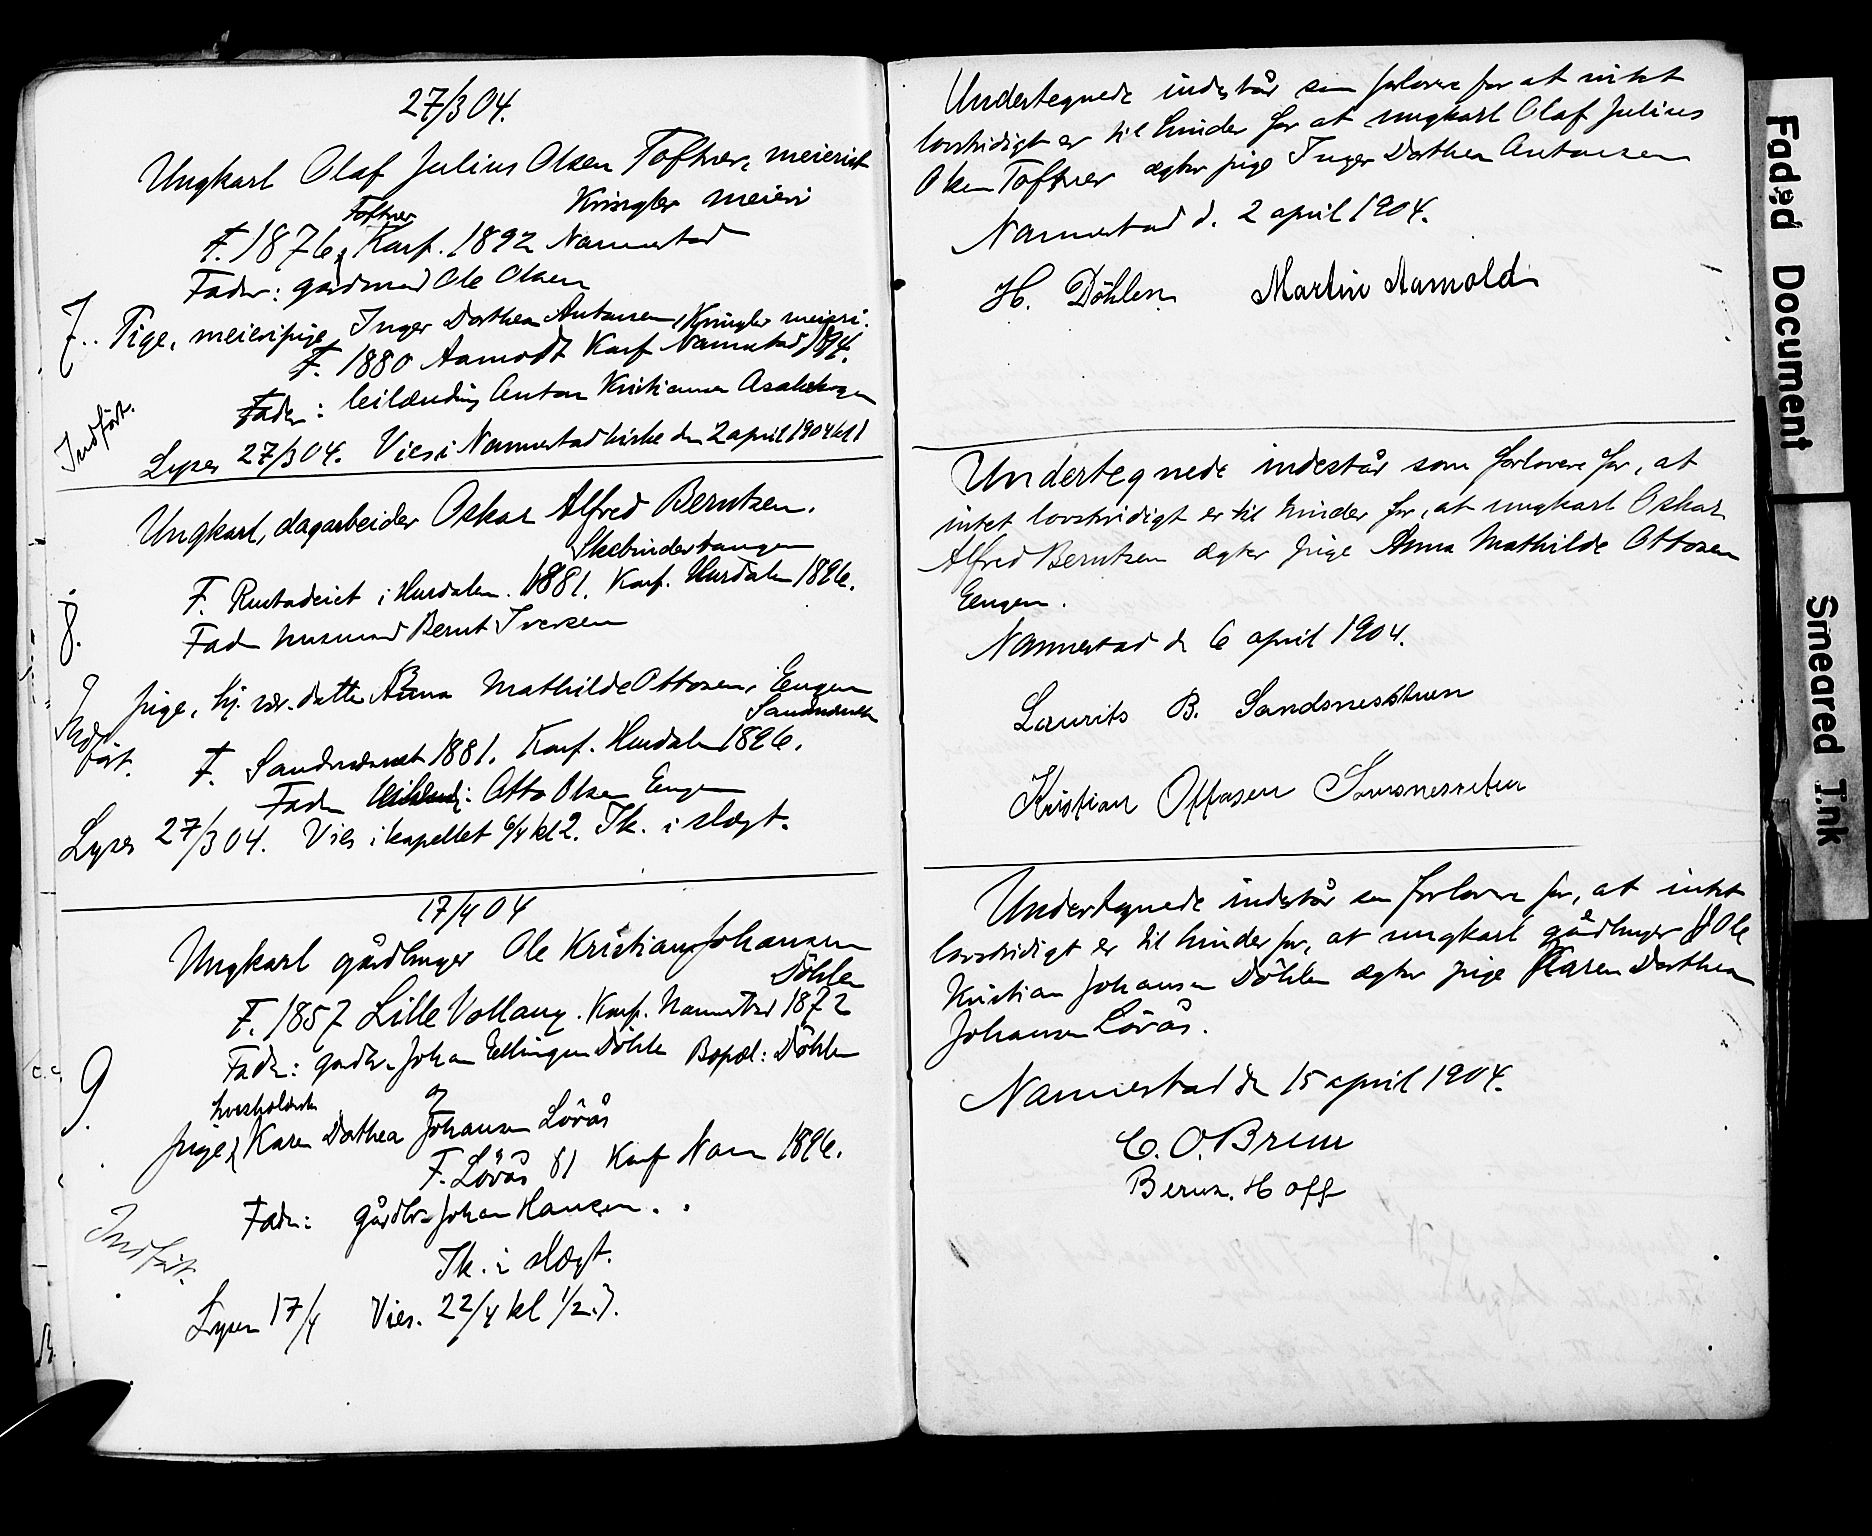 27/3 04.
Ungkarl Olaf Julius Olsen Toftner, meierist
Kringler meieri
Toftner
F. 1876, Konf. 1892 Nannestad
Fader: gårdmand Ole Olsen
7. Pige, meieripige, Inger Dorthea Antonsen, Kringler meieri.
F. 1880 Aamodt Konf Nannestad 1894.
Fader: leilænding Anton Kristiansen
Indført.
Lyses 27/3 04. Vies i Nannestad kirke den 2 april 1904 kl 1
Ungkarl, dagarbeider Oskar Alfred Berntsen.
Skobindertangen
8. F. Rustadeiet i Hurdalen. 1881. Konf. Hurdalen 1896.
Fader husmand Bernt Iversen
pige, hj. vær. datter Anna Mathilde Ottosen, Engen
Indført.
F. Sandsnesset 1881. Konf. Hurdalen 1896.
Fader Otto Olsen Engen
Lyses 27/3 04. Vies i kapellet 6/4 kl 2. Ik. i slægt.
17/4 04
Ungkarl gårdbruger Ole Kristian Johansen
Döhlen
F. 1857 Lille Vollaug. Konf. Nannestad 1872
Fader: gårdbr. Johan Ellingsen Döhlen Bopæl: Döhlen
9.
og
husholderske
pige, Karen Dorthea Johansen Lörås
F. Lörås 81 Konf Nann 1896.
Fader: gårdbr. Johan Hansen.
Indført.
Ik. i slægt.
Lyses 17/4 Vies. 22/4 kl 1/2.3.
Undertegnede indestår som forlovere for at intet
lovstridigt er til hinder for at ungkarl Olaf Julius
Olsen Toftner ægter pige Inger Dorthea Antonsen
Nannestad d. 2 april 1904.
H. Döhlen Martin Aamold
Undertegnede indestår som forlovere for, at
intet lovstridigt er til hinder for, at ungkarl Oskar
Alfred Berntsen ægter pige Anna Mathilde Ottosen
Engen.
Nannestad d. 6 april 1904.
Laurits B. Sandsnesstuen
Kristian Ottosen
Undertegnede indestår som forlovere for, at intet
lovstridigt er til hinder for, at ungkarl gårdbruger Ole
Kristian Johansen Döhlen ægter pige Karen Dorthea
Johansen Lörås.
Nannestad d. 15 april 1904.
C. O. Breen
Bernh. Hoff
Faded Document
Smeared Ink